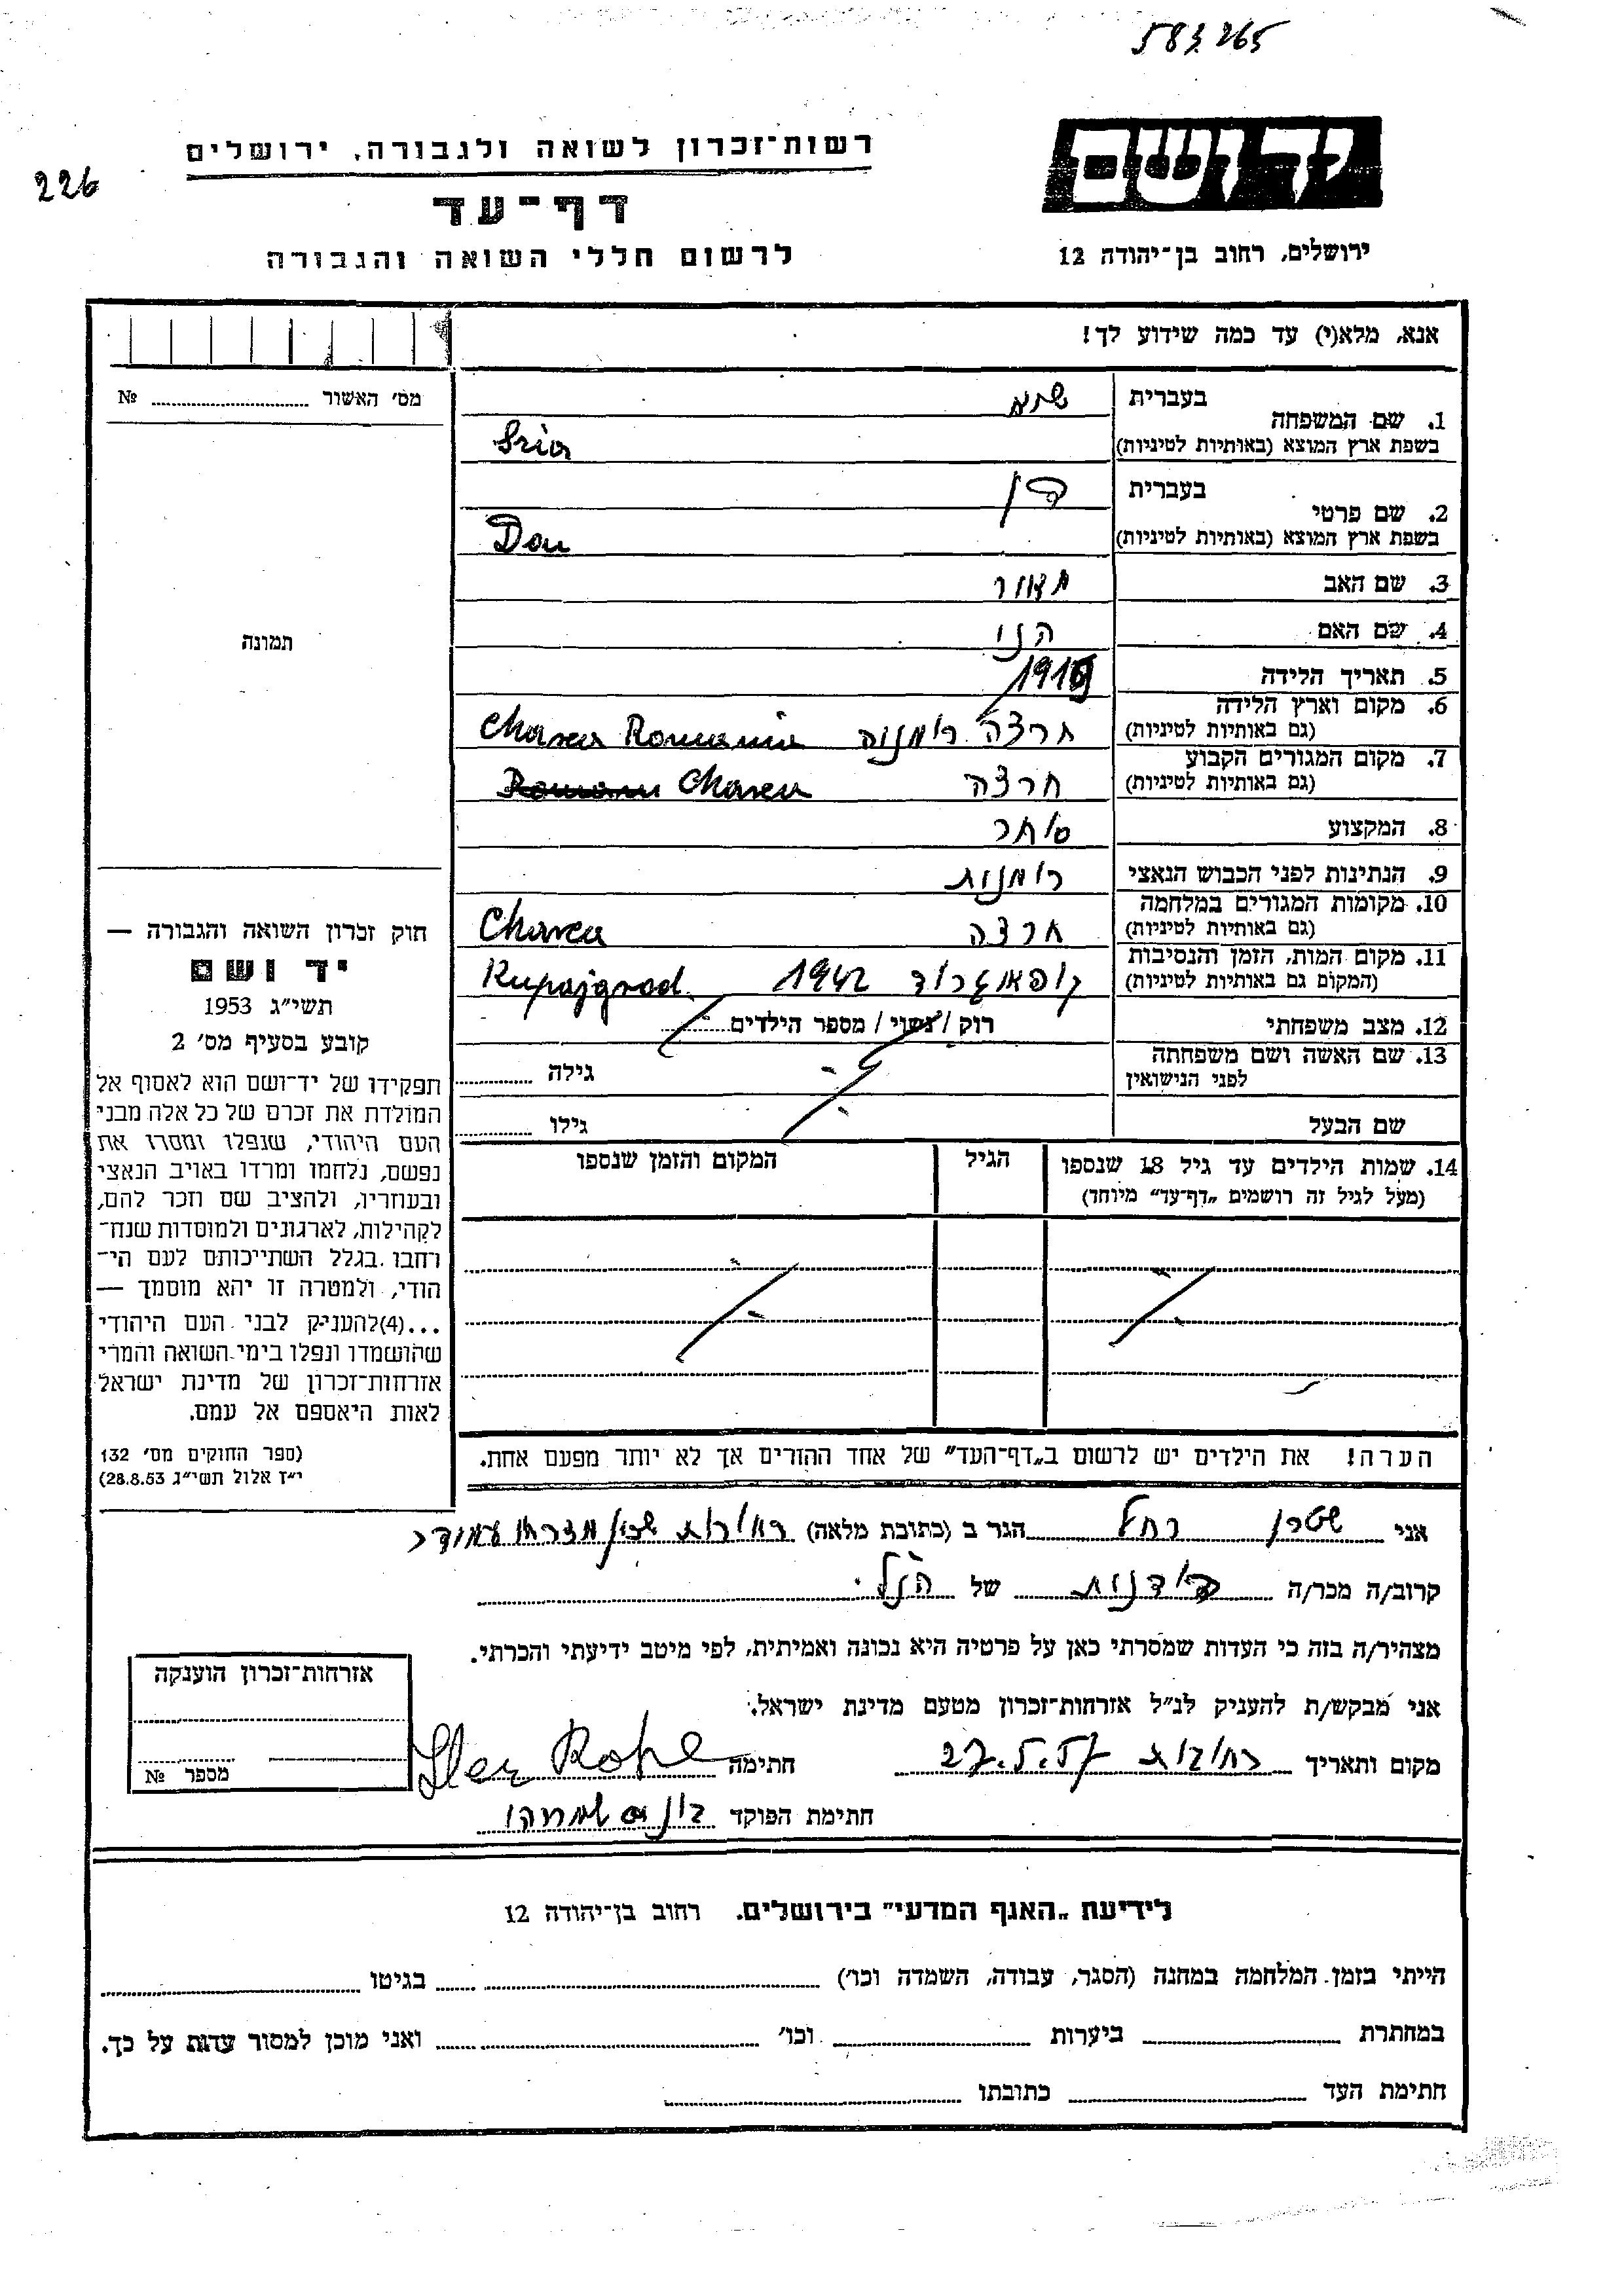 583265
226
יד ושם
ירושלים, רחוב בן־יהודה 12
רשות־זכרון לשואה ולגבורה, ירושלים
דף־עד
לרשום חללי השואה והגבורה
אנא, מלא(י) עד כמה שידוע לך!
מס׳ האשור № 
1. שם המשפחה
בעברית
בשפת ארץ המוצא (באותיות לטיניות)
2. שם פרטי
בעברית דן
בשפת ארץ המוצא (באותיות לטיניות) Dou
3. שם האב
4. שם האם הני
5. תאריך הלידה
6. מקום וארץ הלידה
(גם באותיות לטיניות) חרצה רומניה Charca Romania
7. מקום המגורים הקבוע
(גם באותיות לטיניות) חרצה Charca
8. המקצוע סוחר
9. הנתינות לפני הכבוש הנאצי רומנית
10. מקומות המגורים במלחמה
(גם באותיות לטיניות) חרצה Charca
11. מקום המות, הזמן והנסיבות
(המקום גם באותיות לטיניות) קופאיגרוד 1942 Kupajgrad
12. מצב משפחתי רוק / נשוי / מספר הילדים
13. שם האשה ושם משפחתה
לפני הנישואין גילה
שם הבעל גילו
14. שמות הילדים עד גיל 18 שנספו
(מעל לגיל זה רושמים „דף־עד״ מיוחד)
הגיל
המקום והזמן שנספו
תמונה
חוק זכרון השואה והגבורה —
יד ושם
תשי״ג 1953
קובע בסעיף מס׳ 2
תפקידו של יד־ושם הוא לאסוף אל
המולדת את זכרם של כל אלה מבני
העם היהודי, שנפלו ומסרו את
נפשם, נלחמו ומרדו באויב הנאצי
ובעוזריו, ולהציב שם וזכר להם,
לקהילות, לארגונים ולמוסדות שנח־
רבו בגלל השתייכותם לעם הי־
הודי, ולמטרה זו יהא מוסמך —
...(4)להעניק לבני העם היהודי
שהושמדו ונפלו בימי השואה והמרי
אזרחות־זכרון של מדינת ישראל
לאות היאספם אל עמם.
(ספר החוקים מס׳ 132
י״ז אלול תשי״ג 28.8.53)
הערה! את הילדים יש לרשום ב„דף־העד״ של אחד ההורים אך לא יותר מפעם אחת.
אני שטרן רחל הגר ב (כתובת מלאה) רחובות שכון
קרוב/ה מכר/ה בן דודנית של הנ״ל
מצהיר/ה בזה כי העדות שמסרתי כאן על פרטיה היא נכונה ואמיתית, לפי מיטב ידיעתי והכרתי.
אני מבקש/ת להעניק לנ״ל אזרחות־זכרון מטעם מדינת ישראל.
מקום ותאריך רחובות 27.5.57 חתימה
חתימת הפוקד
אזרחות־זכרון הוענקה
מספר №
לידיעת „האגף המדעי״ בירושלים. רחוב בן־יהודה 12
הייתי בזמן המלחמה במחנה (הסגר, עבודה, השמדה וכו׳) בגיטו
במחתרת ביערות וכו׳ ואני מוכן למסור עדות על כך.
חתימת העד כתובתו